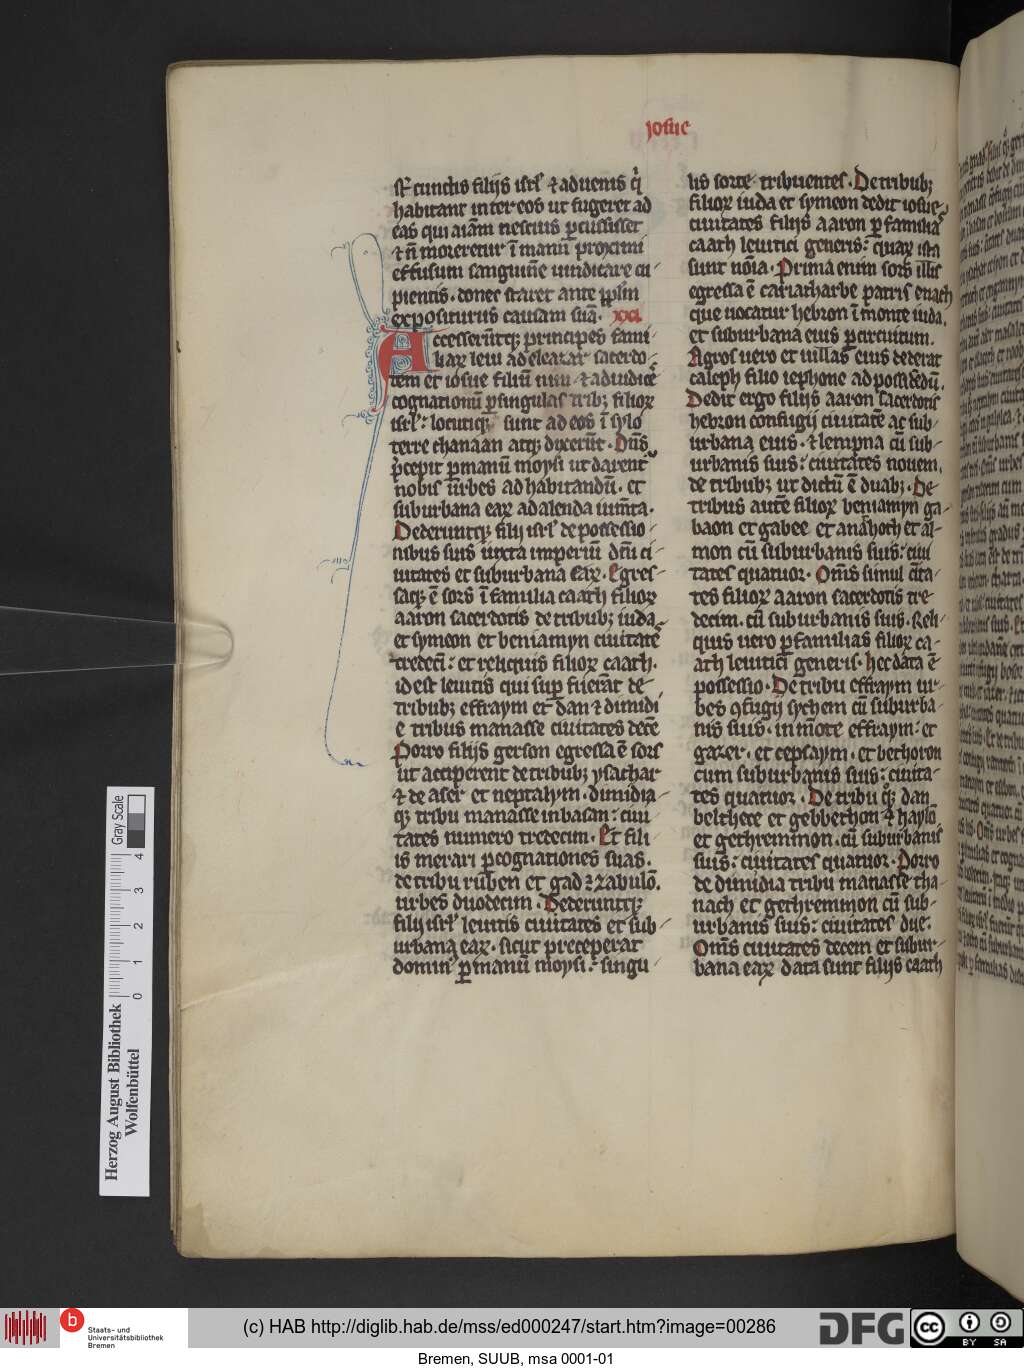 Josue
sṝ cunctis filijs isrl' ⁊ aduenis q̇
habitant inter eos ut fugeret ad
eas qui aīam nescius ꝑcussisset
⁊ n̄ moreretur ī manu proximi
effusum sanguinē uindicare cu
pientis · donec staret ante pplm
expositurus causam suā · xxi
Accesserūtqꝫ principes fami
liaꝝ leui ad eleazar sacerdo
tem et iosue filiū nun · ⁊ ad iudicē
cognationū ꝑ singulas tribꝫ filioꝝ
isrl' : locutiqꝫ sunt ad eos ī sylo
terre chanaan atqꝫ dixerūt · Dn̄s
p̄cepit ꝑ manū moysi ut darent
nobis urbes ad habitandū · et
suburbana eaꝝ ad alenda iumta
Dederuntqꝫ filij isrl' de possessio
nibus suis iuxta imperiū dn̄i ci
uitates et suburbana eaꝝ · Egres
saqꝫ ē sors ī familia caath filioꝝ
aaron sacerdotis de tribubꝫ iuda
et symeon et beniamyn ciuitatē
tredecī : et reliquis filioꝝ caath ·
id est leuitis qui suꝑ fuerāt de
tribubꝫ effraym et dan ⁊ dimidi
e tribus manasse ciuitates decē
Porro filijs gerson egressa ē sors
ut acciperent de tribubꝫ ysachar
⁊ de aser et neptalym · dimidia
qꝫ tribu manasse in basan : ciui
tates numero tredecim · Et fili
is merari ꝑ cognationes suas ·
de tribu ruben et gad ⁊ zabulō ·
urbes duodecim · Dederuntqꝫ
filij isrl' leuitis ciuitates et sub
urbana eaꝝ · sicut preceperat
domin' ꝑ manū moysi : singu
lis sorte tribuentes · De tribubꝫ
filioꝝ iuda et symeon dedit iosue
ciuitates filijs aaron ꝑ familias
caath leuitici generis : quaꝝ ista
sunt nōia · Prima enim sors illis
egressa ē cariatharbe patris enach
que uocatur hebron ī monte iuda ·
et suburbana eius ꝑ circuitum ·
Agros uero et uillas eius dederat
caleph filio iephone ad possidēdū ·
Dedit ergo filijs aaron sacerdotis
hebron confugij ciuitatē ac sub
urbana eius · ⁊ lempna cū sub
urbanis suis : ciuitates nouem ·
de tribubꝫ ut dictū ē duabꝫ · De
tribus autē filioꝝ beniamyn ga
baon et gabee et anathoth et al
mon cū suburbanis suis : ciui
tates quatuor · Om̄s simul ciuita
tes filioꝝ aaron sacerdotis tre
decim · cū suburbanis suis · Reli
quis uero ꝑ familias filioꝝ ca
ath leuitici generis · hec data ē
possessio · De tribu effraym ur
bes ꝯfugij sychem cū suburba
nis suis · in mōte effraym : et
gazer · et cepsaym · et bethoron
cum suburbanis suis : ciuita
tes quatuor · De tribu qꝫ dan
belthece et gebbethon ⁊ haylō
et gethremmon · cū suburbanis
suis : ciuitates quatuor · Porro
de dimidia tribu manasse tha
nach et gethremmon cū sub
urbanis suis : ciuitates due ·
Om̄s ciuitates decem et subur
bana eaꝝ data sunt filijs caath
Gray Scale
4
3
2
1
0
Herzog August Bibliothek
Wolfenbüttel
b
Staats- und
Universitätsbibliothek
Bremen
(c) HAB http://diglib.hab.de/mss/ed000247/start.htm?image=00286
DFG
cc
BY SA
Bremen, SUUB, msa 0001-01